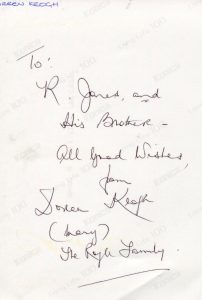 KEOGH
To:
R. Jones, and
His Brother –
All Good Wishes,
from
Doreen Keogh
(Mary)
The Royle Family.